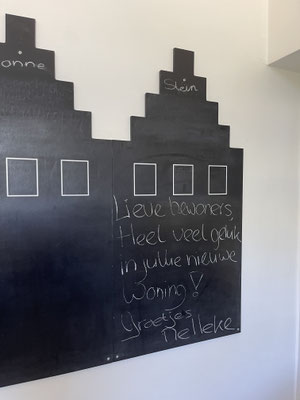 onne
Stein
Lieve bewoners,
Heel veel geluk
in jullie nieuwe
Woning!
Groetjes
Nelleke.